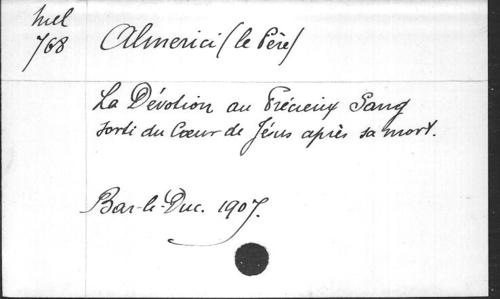 Mel
768
Almerici (le Père)
La Dévotion au Précieux Sang
sorti du Cœur de Jésus après sa mort.
Bar-le-Duc. 1907.